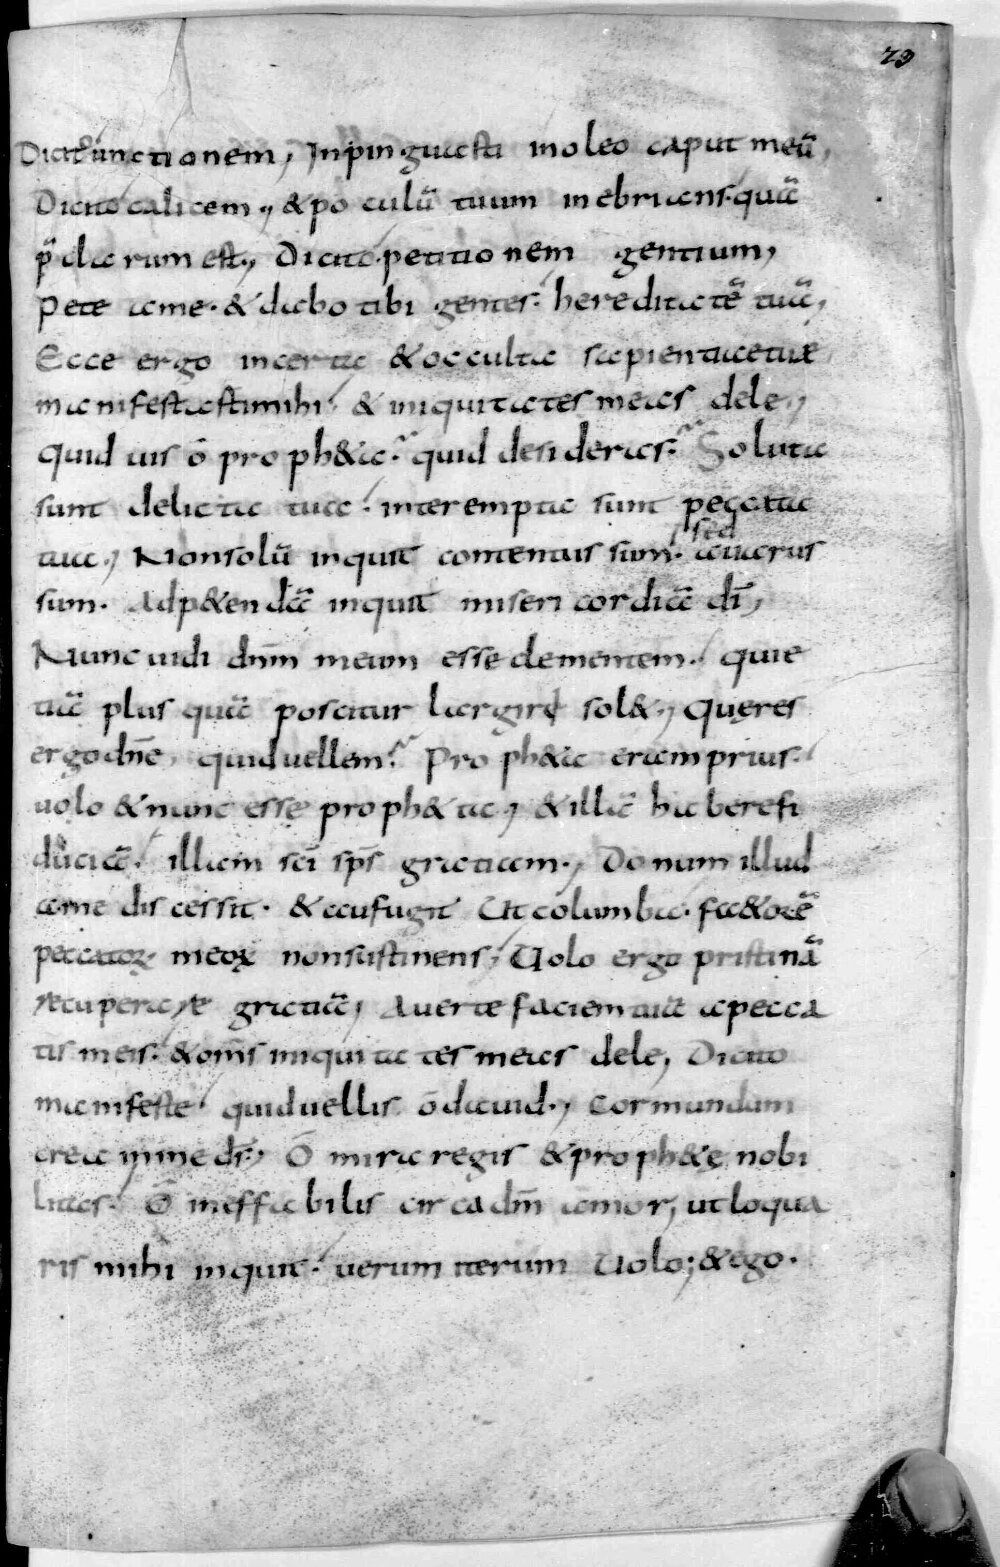 29
Dicit͛ unctionem, Inpinguasti inoleo caput meū,
Dicito calicem, & poculū tuum inebrians. quā
p̄clarum est, Dicito petitionem gentium,
Pete ame. & dabo tibi gentes. hereditatē tuā,
Ecce ergo incerta & occulta sapientiae tuae
manifestasti mihi. & iniquitates meas dele,
quid uis ō proph&a? quid desideras? Soluta
sunt delicta tua. interempta sunt peccata
tua, Non solū inquit contentus sum. sed auarus
sum. Adp&endā inquit misericordiā dī,
Nunc uidi dnm̄ meum esse clementem. quie
tiā plus quā poscitur largire sol&, Quęres
ergo dn̄e, quid uellem? Proph&a eram prius.
uolo & nunc esse proph&a, & illā haberefi
duciā. illam sc̄i sp̄s gratiam, Donum illud
ame discessit. & aufugit Ut columba. fa&orē
peccatoꝝ meoꝝ non sustinens, Uolo ergo pristinā
recuperare gratiā, Auerte faciem tuā apecca
tis meis. & om̄s iniquitates meas dele, Dicito
manifeste quid uellis ō dauid, Cor mundum
crea inme ds̄, Ō mira regis & proph&ę nobi
litas. Ō ineffabilis circa dm̄ amor, ut loqua
ris mihi inquit. uerum iterum Uolo; & ego.